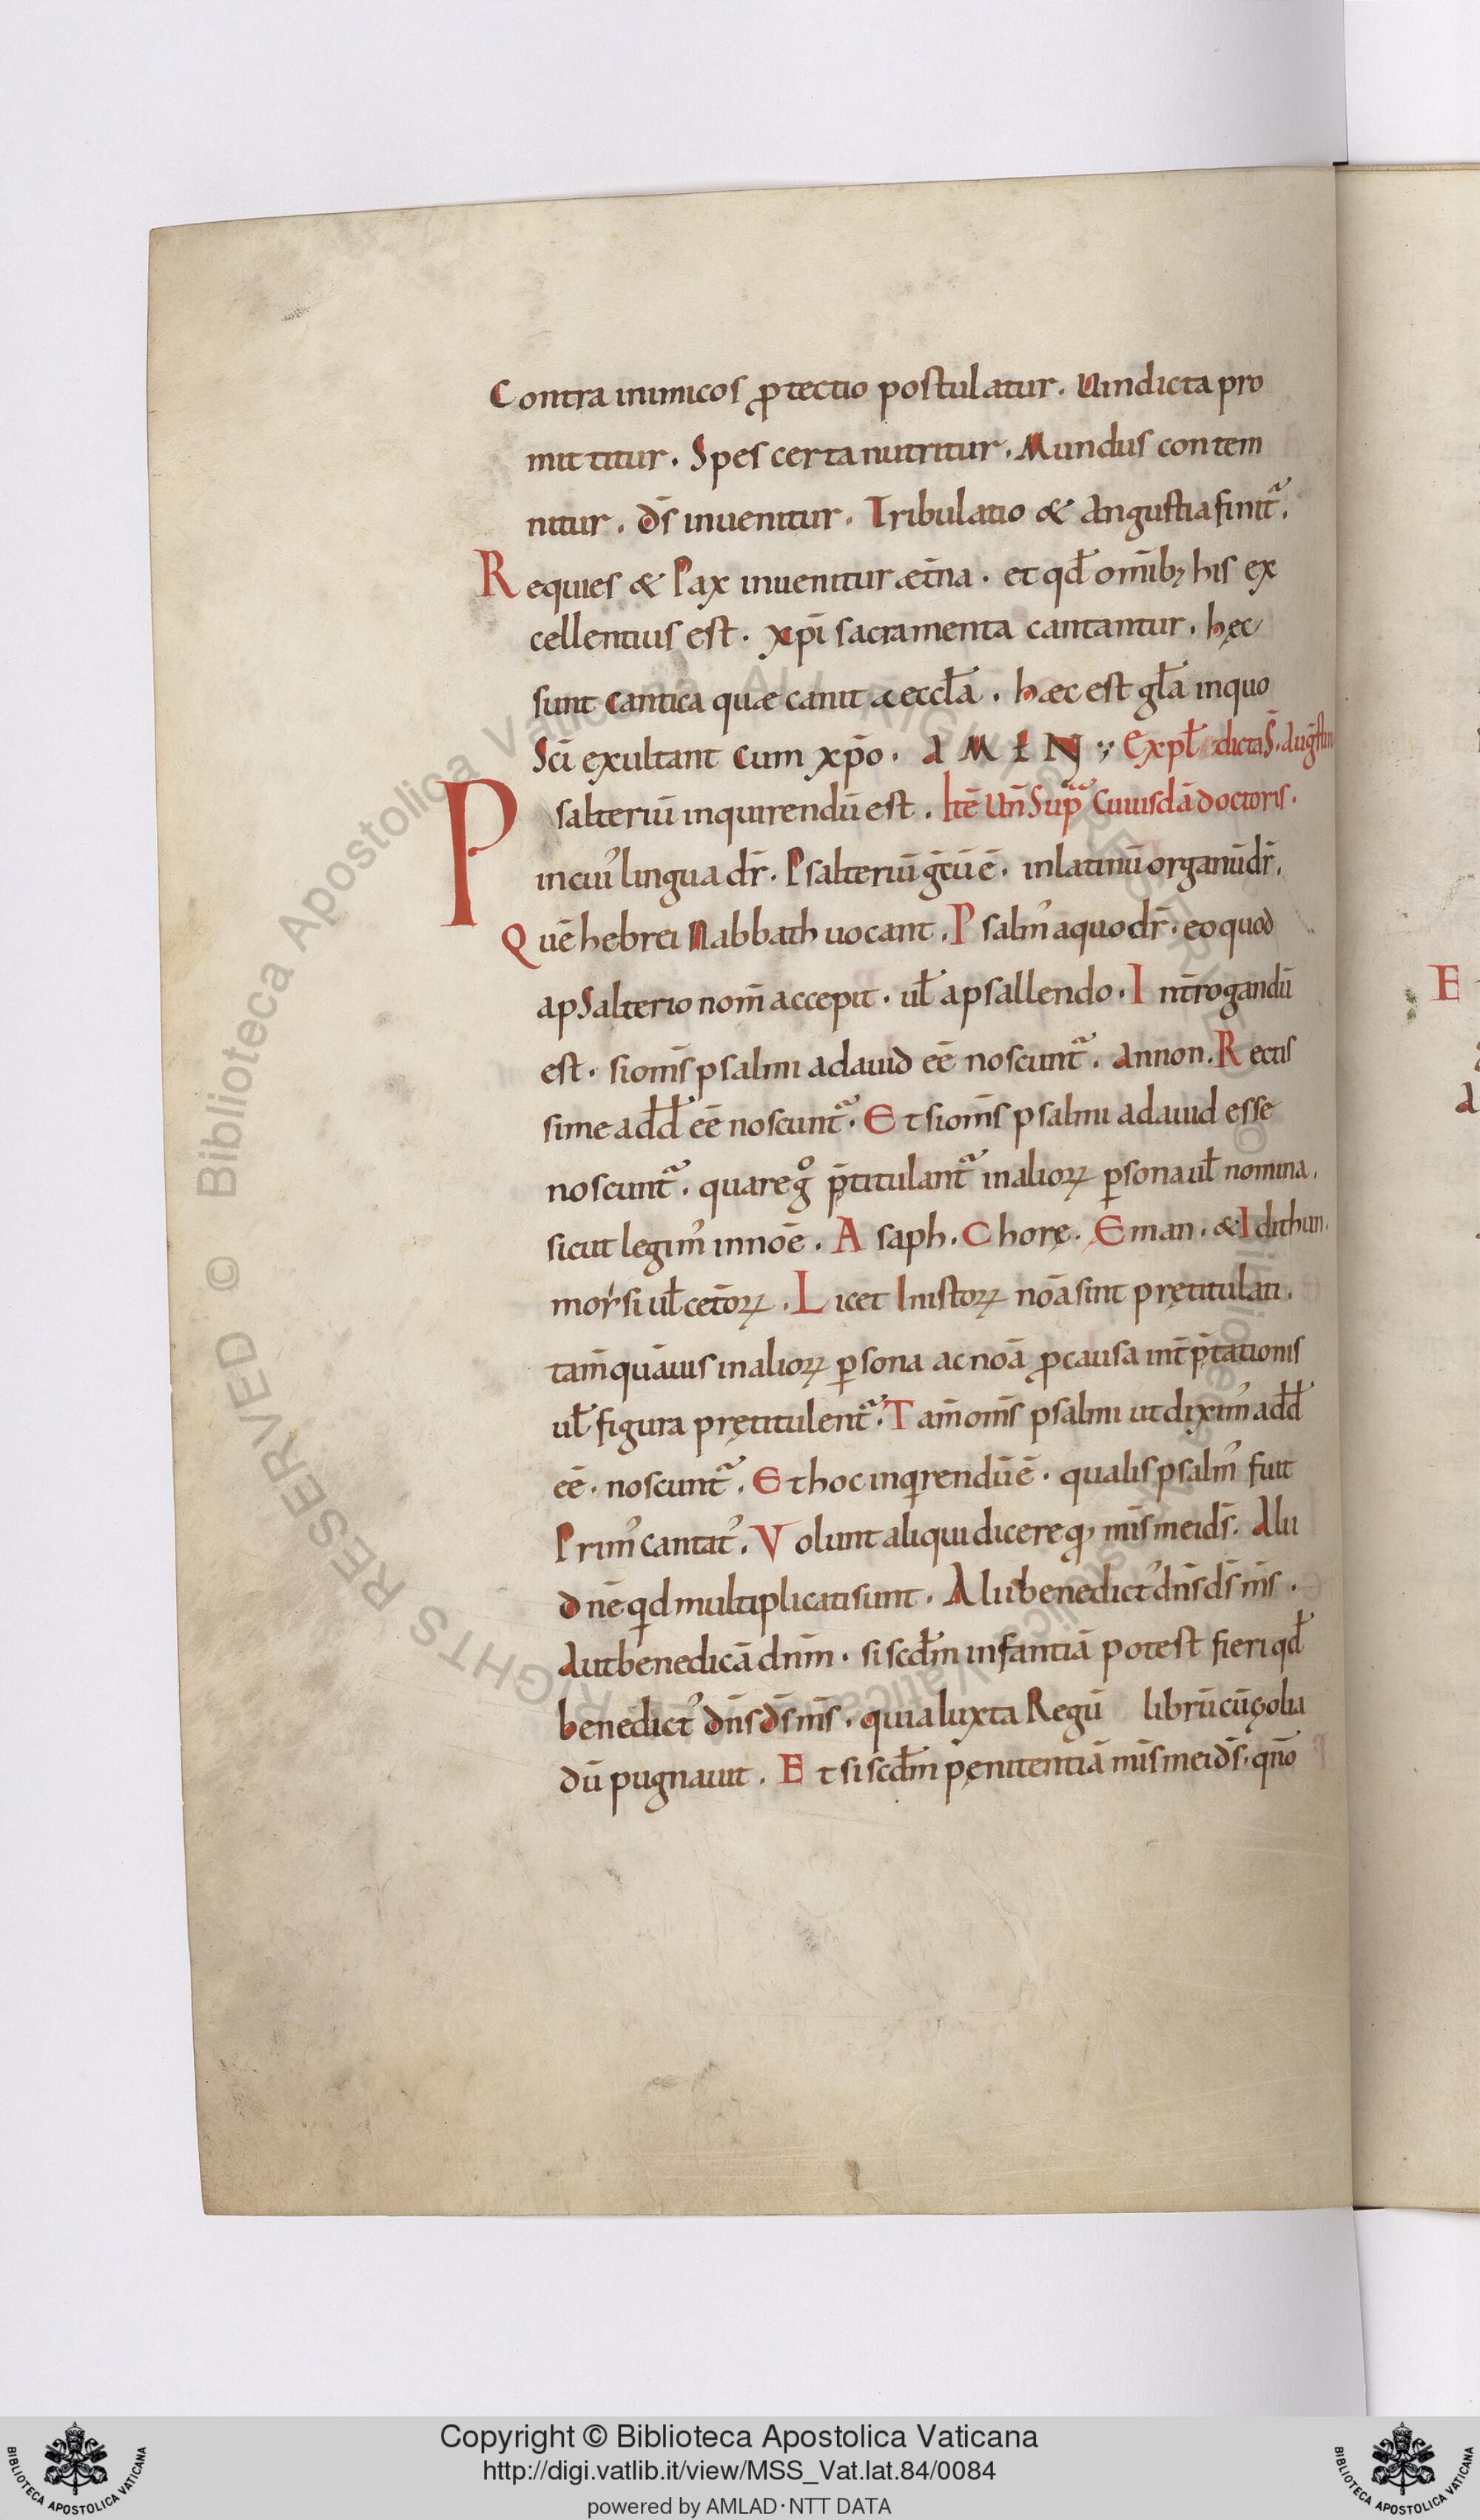 Contra inimicos ꝓtectio postulatur. Uindicta pro
mittitur. Spes certa nutritur. Mundus contem
nitur. dſ̄ inuenitur. Tribulatio & Angustia finit᷑.
Requies & Pax inuenitur æt̄na. et qđ om̄ibꝫ his ex
cellentius est. xp̄i sacramenta cantantur. hęc
sunt Cantica quæ canit æccła. hæc est gła in quo
Sc̄i exultant Cum xp̄o. AMEN Expł dicta S̄. Augustini
Psalteriū inquirendū est. Itē Un̄ Supᷓ Cuiusdā doctoris.
in cui᾽ lingua dr̄. Psalteriū g̅cū ē. in latinū organū dr̄.
Quē hebrei Nabbath uocant. Psalm᾽ a quo dr̄. eo quod
a pSalterio nom̄ accepit. uł a psallendo. Int̄rogandū
est. si om̄s psalmi a dauid eē noscunt᷑. annon. Rectis
sime a dđ eē noscunt᷑. Et si om̄s psalmi a dauid esse
noscunt᷑. quare gͦ p̄titulant᷑ in alioꝝ ꝑsona uł nomina.
sicut legim᾽ in noē. Asaph. Chorę. Eman. & Idithun.
moysi uł cet̄oꝝ. Licet Inistoꝝ noā sint prętitulati.
tam̄ quāuis in alioꝝ ꝑsona ac noā ꝓ causa int̄p̄tationis
uł figura prętitulent᷑. Tam̄ om̄s psalmi ut dixim᾽ a dđ
eē. noscunt᷑. Et hoc inqrendū ē. qualis psalm᾽ fuit
Prim᾽ cantat᾽. Volunt aliqui dicere qđ mis̄ mei dſ̄. Alii
dnē qd multiplicati sunt. Alii benedict᾽ dn̄s dſ̄ ms̄.
Aut benedicā dnm̄. si scđm infantiā potest fieri qđ
benedict᾽ dn̄s dſ̄ ms̄. quia Iuxta Regū librū cū golia
dū pugnauit. Et si scđm pęnitentiā mis̄ mei dſ̄. qn̄o
Copyright © Biblioteca Apostolica Vaticana
http://digi.vatlib.it/view/MSS_Vat.lat.84/0084
powered by AMLAD·NTT DATA